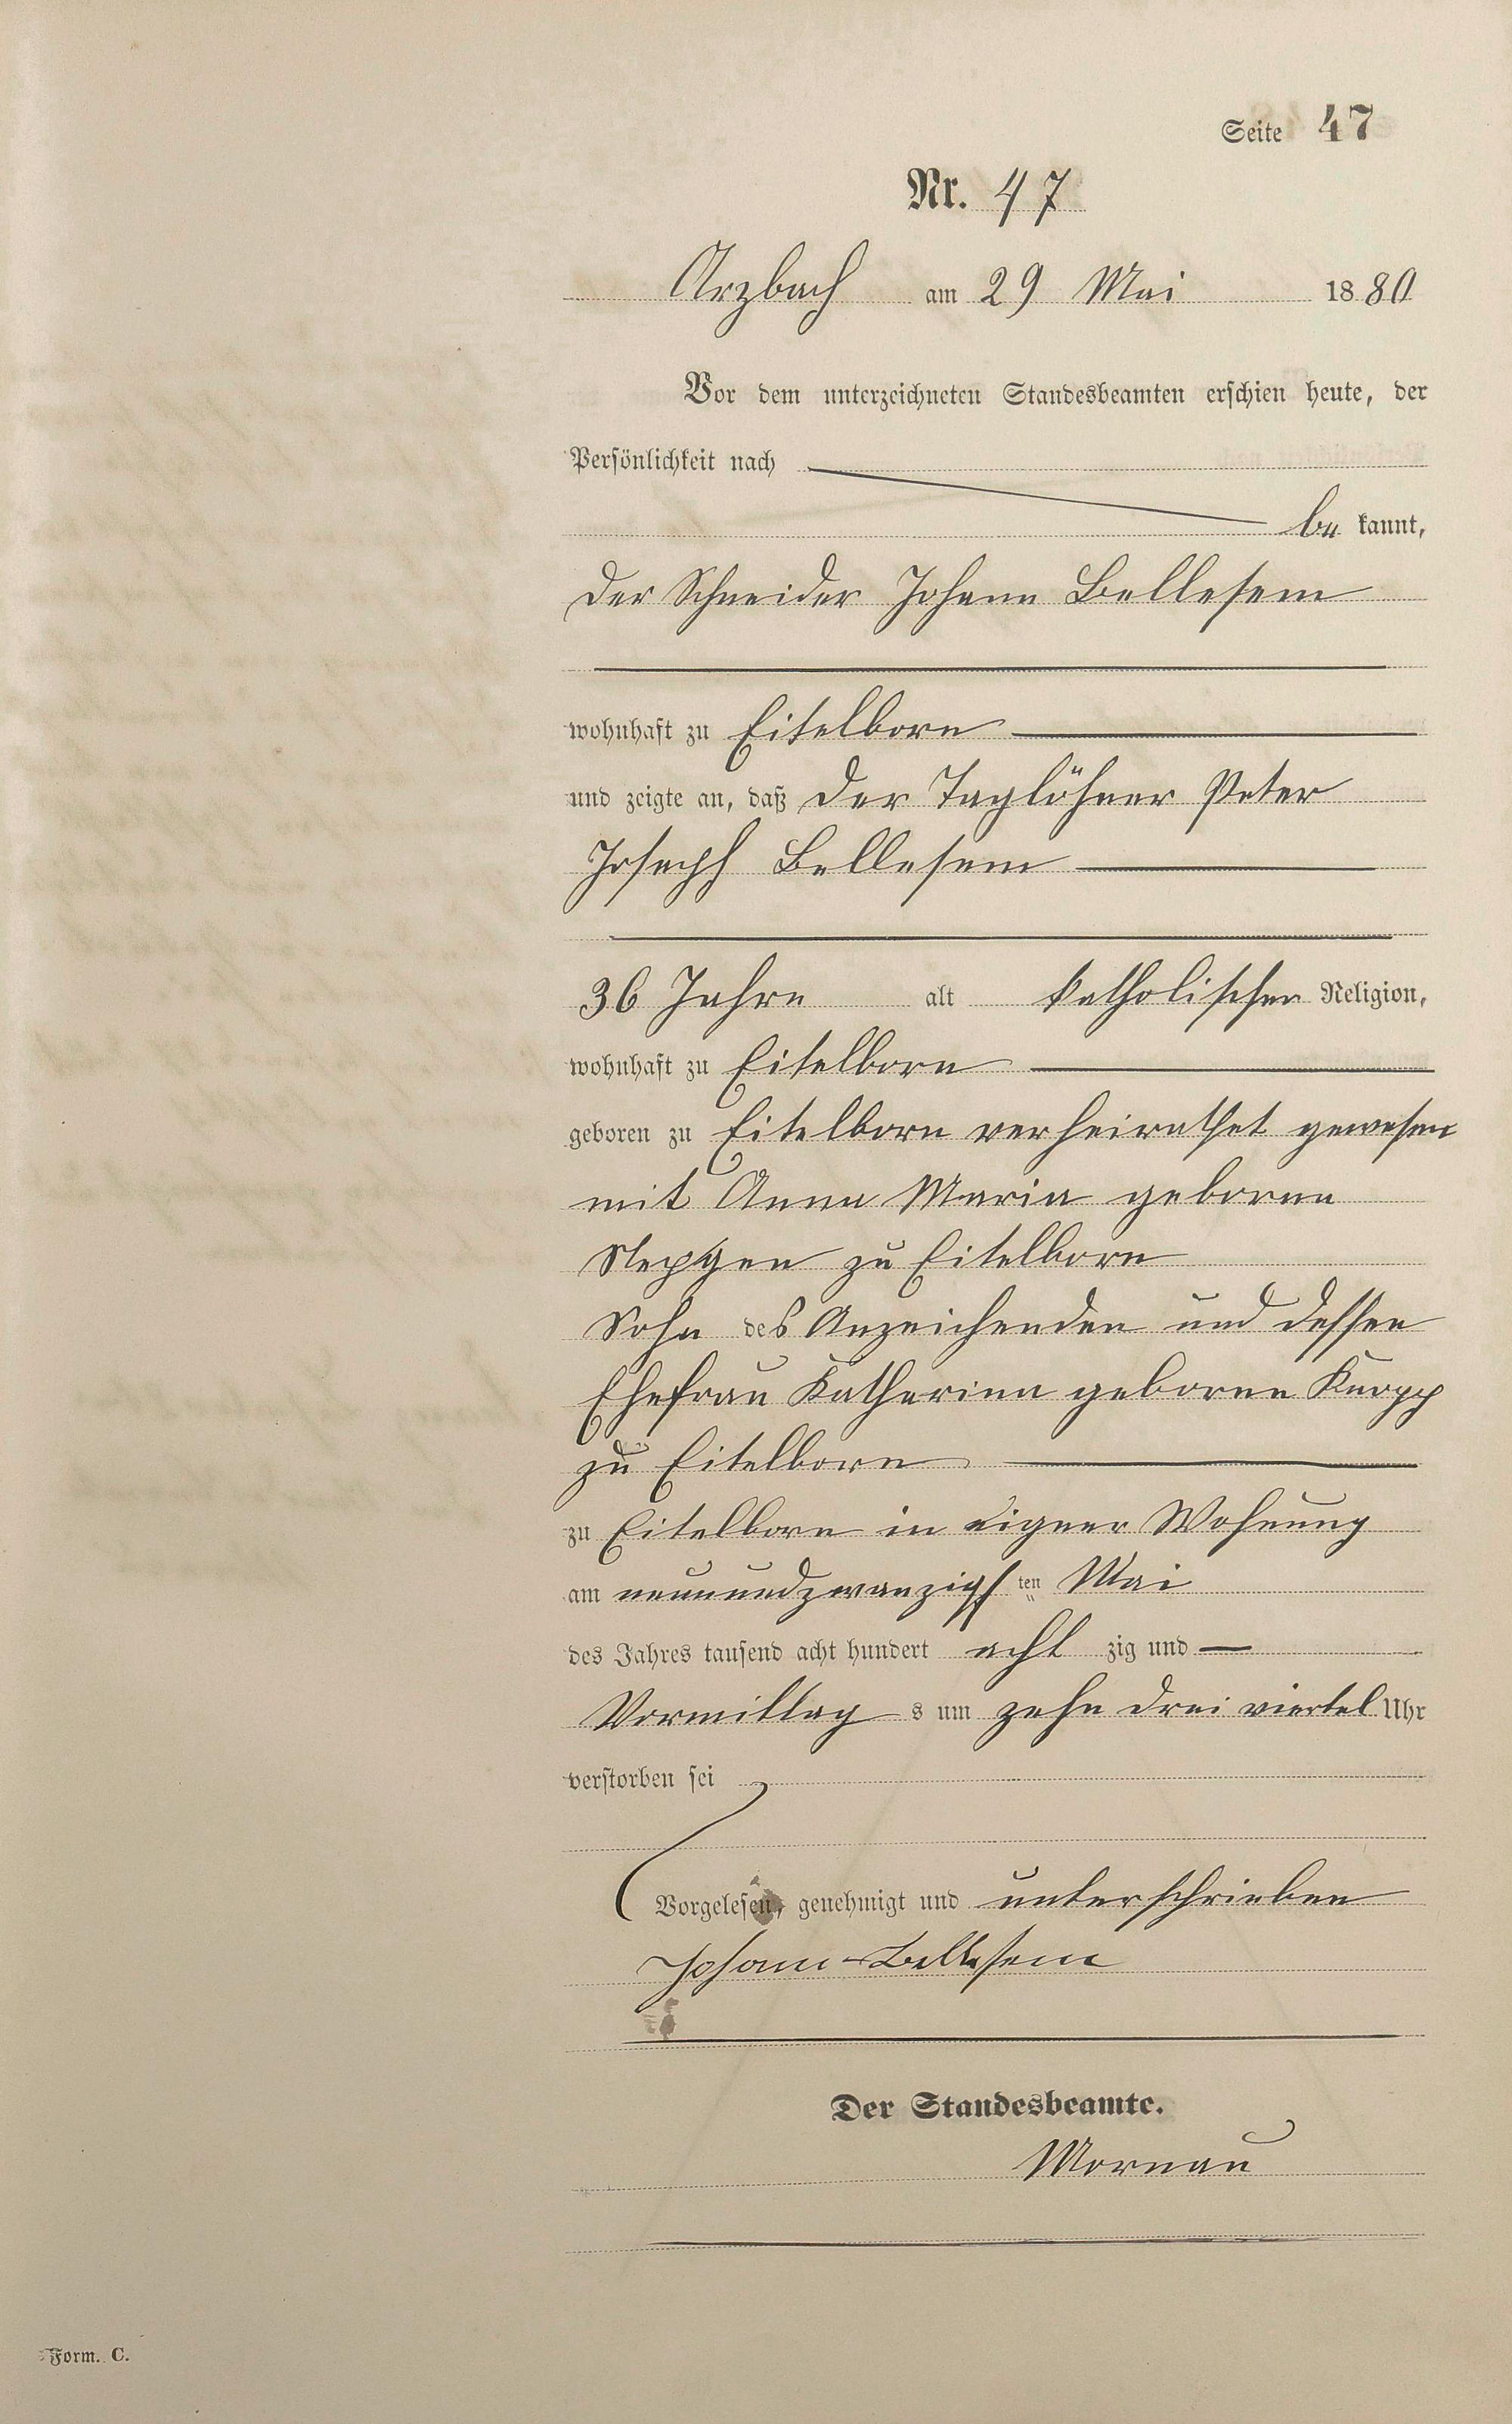 Seite 47
Nr. 47
Arzbach am 29 Mai 1880
Vor dem unterzeichneten Standesbeamten erschien heute, der
Persönlichkeit nach
be kannt,
der Schneider Johann Bellesem
wohnhaft zu Eitelborn
und zeigte an, daß der Taglöhner Peter
Joseph Bellesem
36 Jahre alt katholischer Religion,
wohnhaft zu Eitelborn
geboren zu Eitelborn verheirathet gewesen
mit Anna Maria geborene
zu Eitelborn
Sohn des Anzeichenden und dessen
Ehefrau Katharina geborene Knopp
zu Eitelborn
zu Eitelborn in eigner Wohnung
am neunundzwanzigsten Mai
des Jahres tausend acht hundert acht zig und
Vormittag s um zehn drei viertel Uhr
verstorben sei
Vorgelesen, genehmigt und unterschrieben
Johann Bellesem
Der Standesbeamte.
Mornau
Form. C.